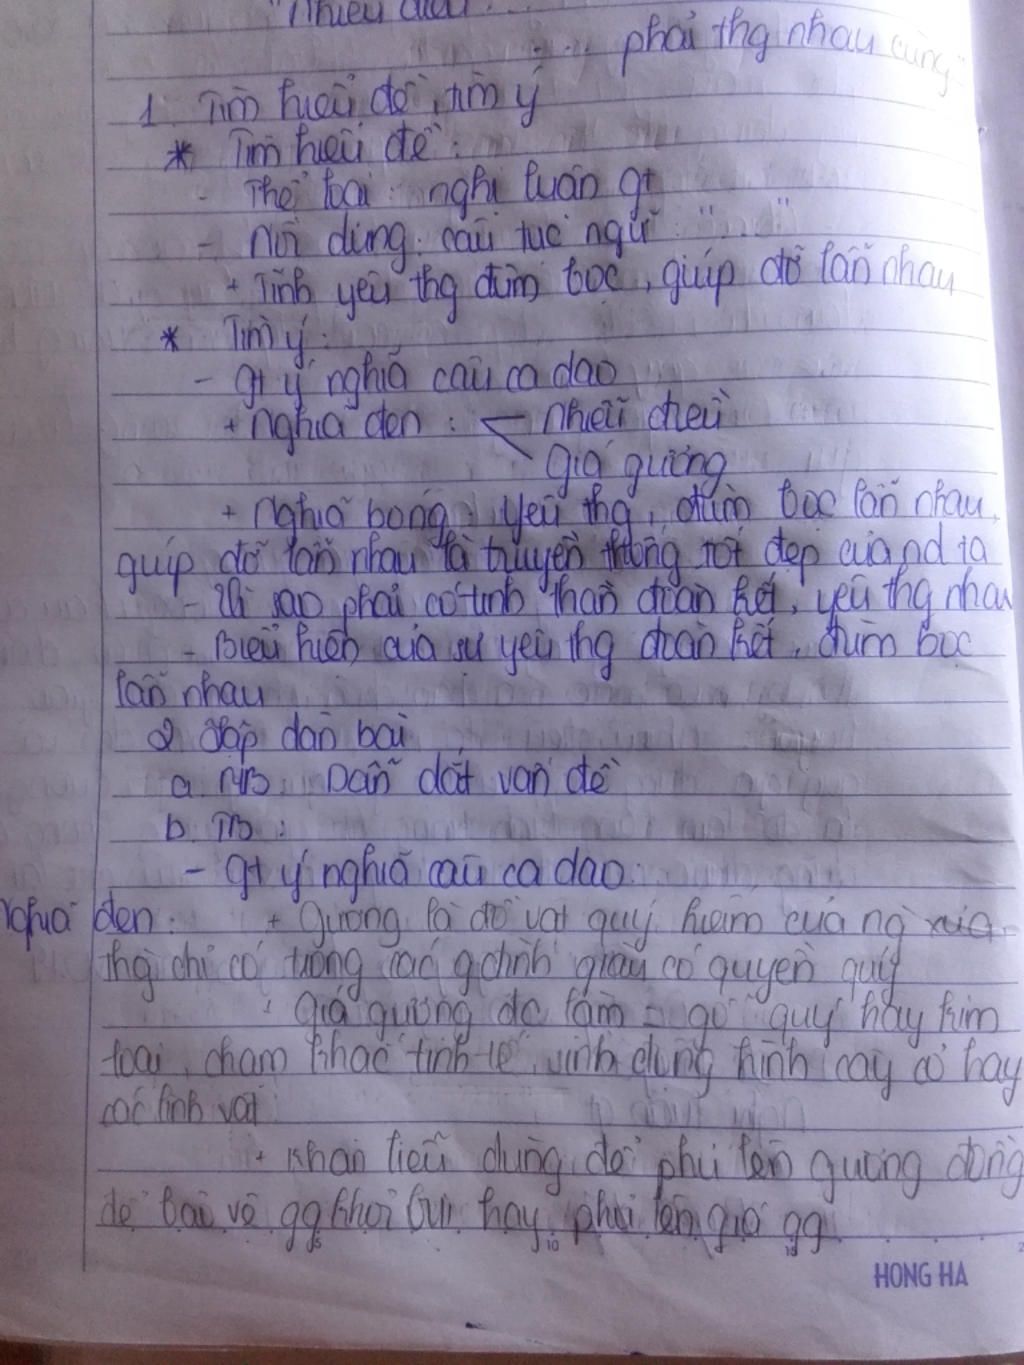 "Nhiễu điều...
... phải thg nhau cùng"
1 Tìm hiểu đề, tìm ý
* Tìm hiểu đề:
- Thể loại: nghị luận gt
- Nội dung: câu tục ngữ " "
+ Tình yêu thg đùm bọc, giúp đỡ lẫn nhau
* Tìm ý:
- gt ý nghĩa câu ca dao
+ nghĩa đen: nhiễu điều
giá gương
+ Nghĩa bóng: yêu thg, đùm bọc lẫn nhau,
giúp đỡ lẫn nhau là truyền thống tốt đẹp của nd ta
- Vì sao phải có tinh thần đoàn kết, yêu thg nhau
- Biểu hiện của sự yêu thg đoàn kết, đùm bọc
lẫn nhau
2 Lập dàn bài
a MB: Dẫn dắt vấn đề
b. TB:
- gt ý nghĩa câu ca dao:
nghĩa đen: + Gương là đồ vật quý hiếm của ng xưa
thg chỉ có trong các gđình giàu có quyền quý
+ giá gương đc làm = gỗ quý hay kim
loại, chạm khắc tinh tế, hình cây cỏ hay
các linh vật
+ khăn liễu dùng để phủ lên gương đồng
để bảo vệ gg khỏi bụi hay phủ lên giá gg
HONG HA